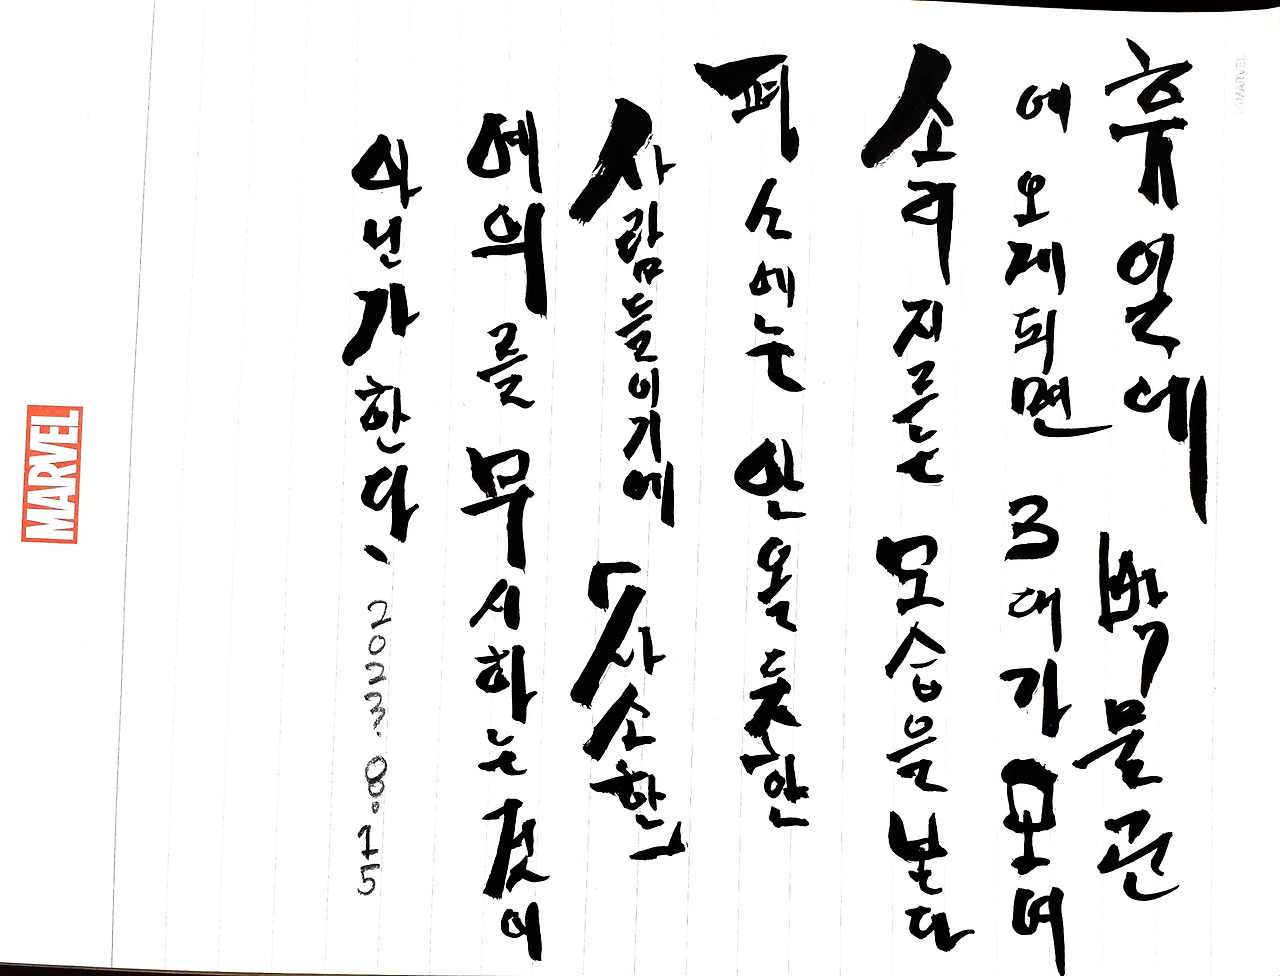 휴일에 박물관
에 오게되면 3대가 모여
소리 지르는 모습을 본다
평소에는 안 올 듯한
사람들이기에 「사소한」
예의를 무시하는 것이
아닌가 한다.
2023. 8. 15
MARVEL
©MARVEL